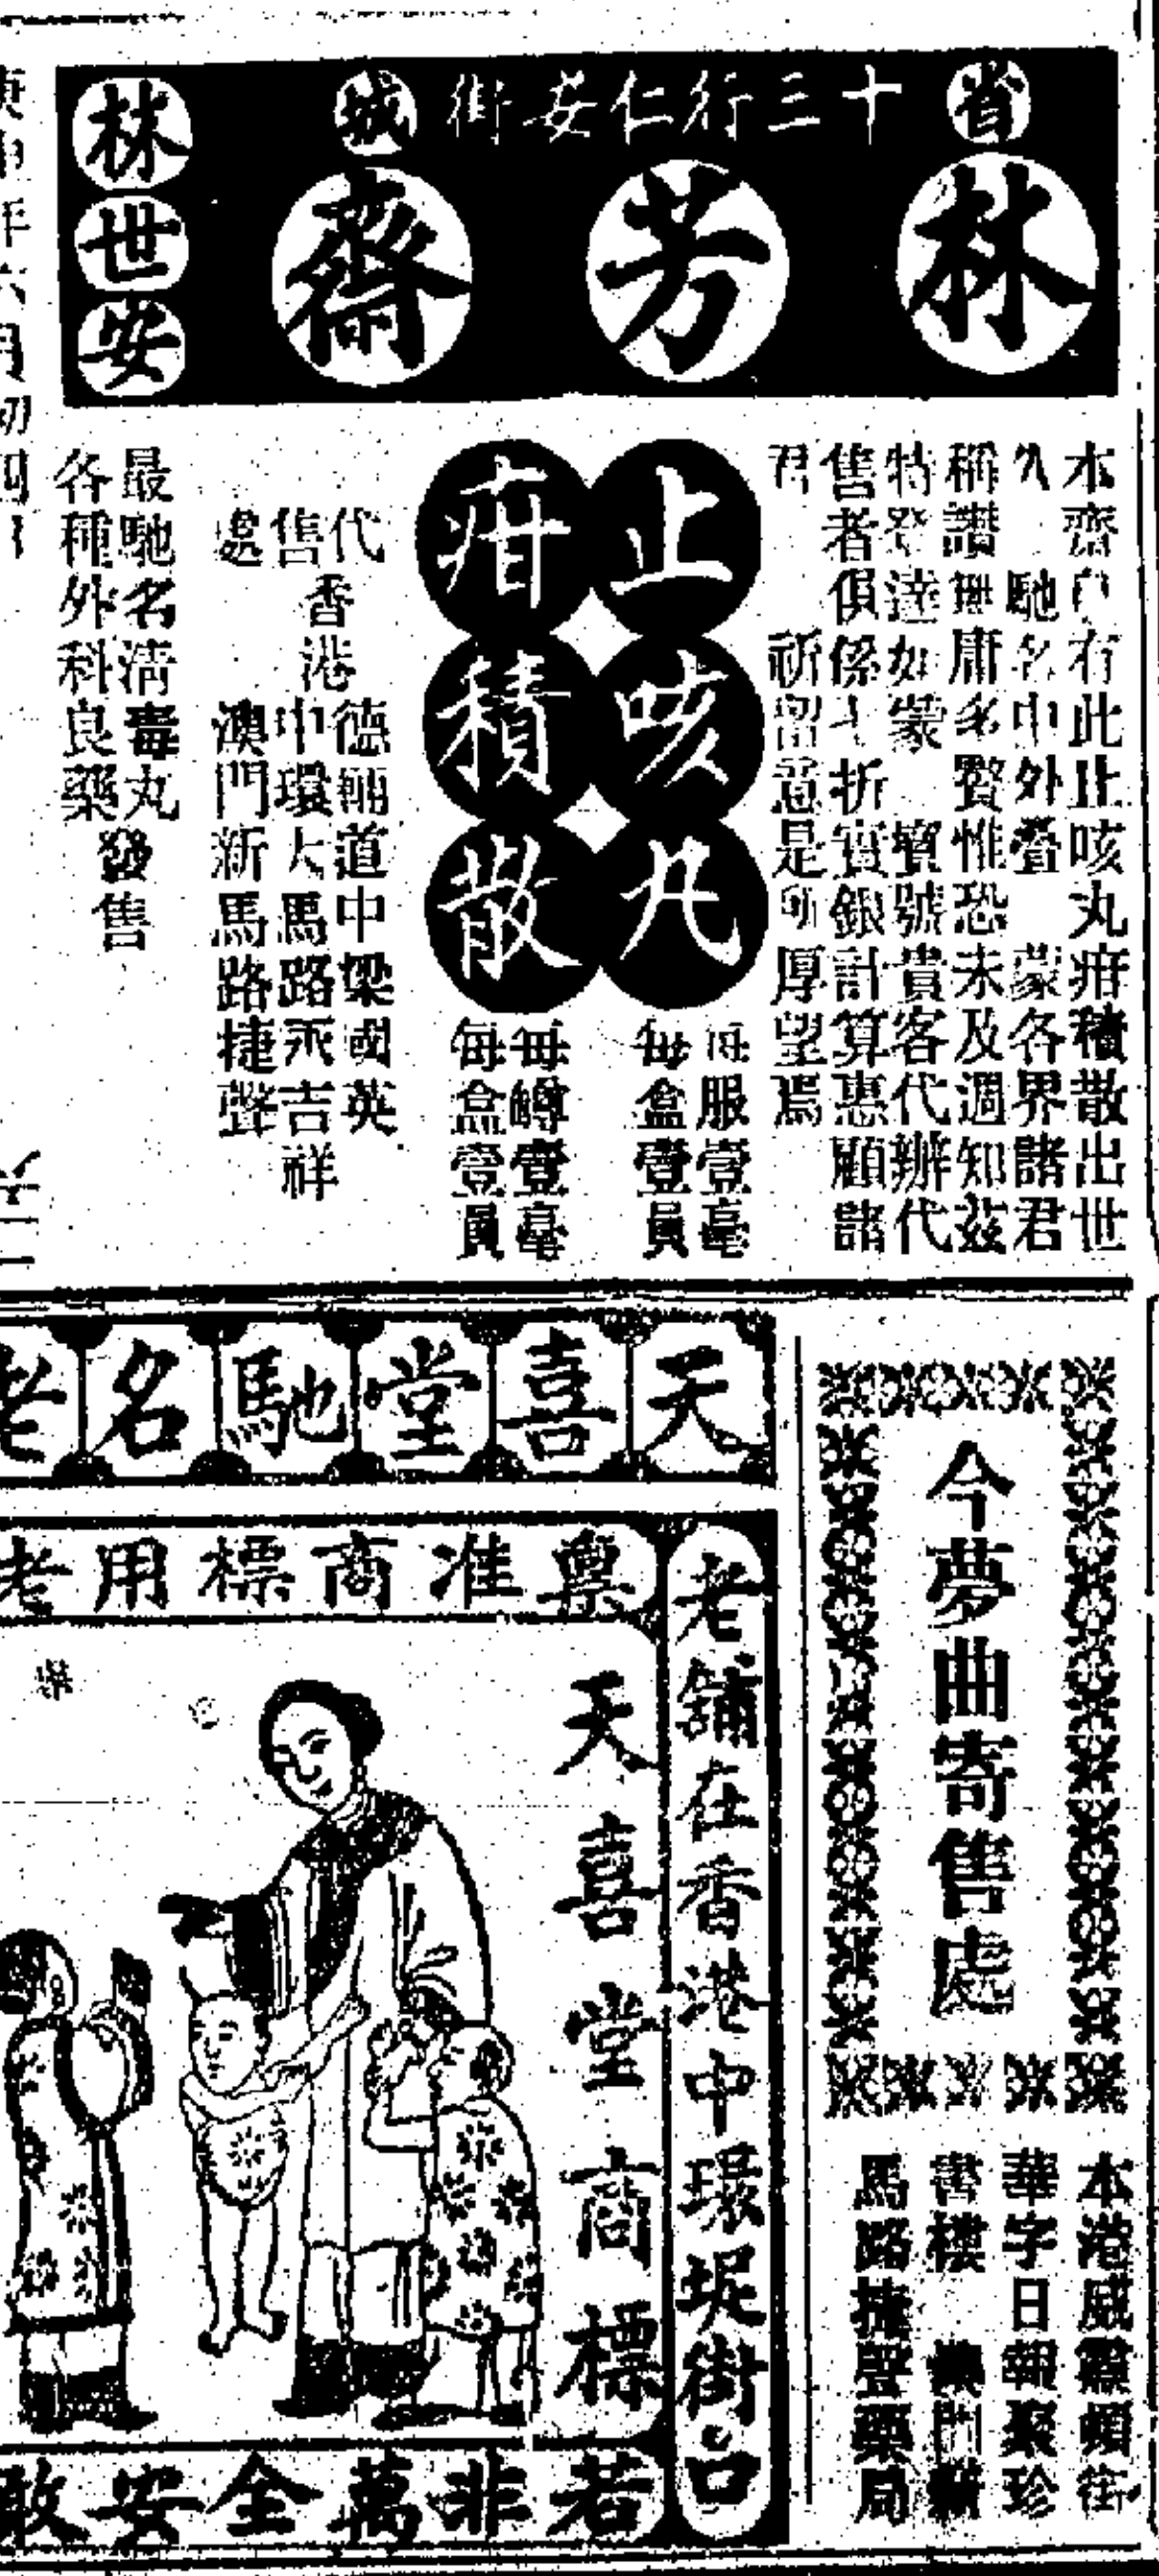 省城
十三行仁安街
林芳齋
林世安
本齋自有此止咳丸疳積散出世
久 馳名中外疊 蒙各界諸君
稱讚無庸多贅惟恐未及週知茲
特登達如蒙 寶號貴客代辦代
售者俱係七折實銀計算惠顧諸
君 祈留意是所厚望焉
止咳丸
每服壹毫
每盒壹員
疳積散
每罇壹毫
每盒壹員
代售處
香港
德輔道中梁國英
中環大馬路永吉祥
澳門新馬路捷聲
最馳名淸毒丸
各種外科良藥
發售
庚申年六月初四日
今夢曲寄售處
本港威靈頓街
華字日報聚珍
書樓 澳門新
馬路捷聲藥局
天喜堂馳名老
稟准商標用老
老舖在香港中環堤街口
天喜堂商標
若非萬全安敢